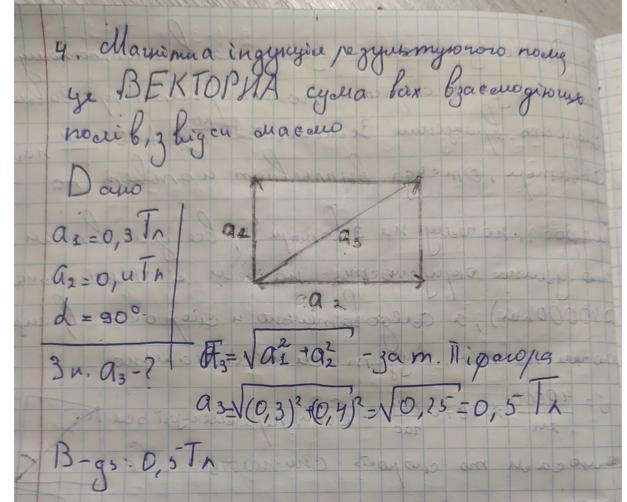 4. Магнітна індукція результуючого поля
це ВЕКТОРНА сума всіх взаємодіючих
полів, звідси маємо
Дано
a₁=0,3 Тл
a₂=0,4 Тл
α = 90°
Зн. a₃-?
a₁
a₃
a₂
a₃=√(a₁²+a₂²) - за т. Піфагора
a₃=√((0,3)²+(0,4)²)=√0,25=0,5 Тл
В-дь: 0,5 Тл